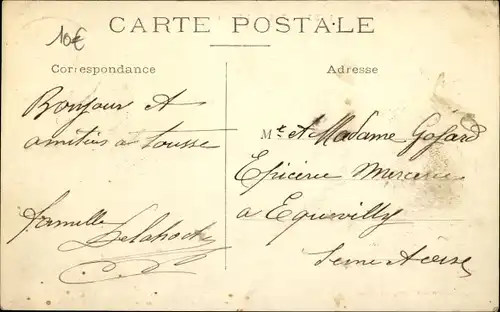 10€
CARTE POSTALE
Correspondance
Adresse
Bonjour et
amitiés a tousse
famille
Delahoche
M.r et Madame Gofard
Epicerie Mercerie
a Equevilly
Seine et Oise